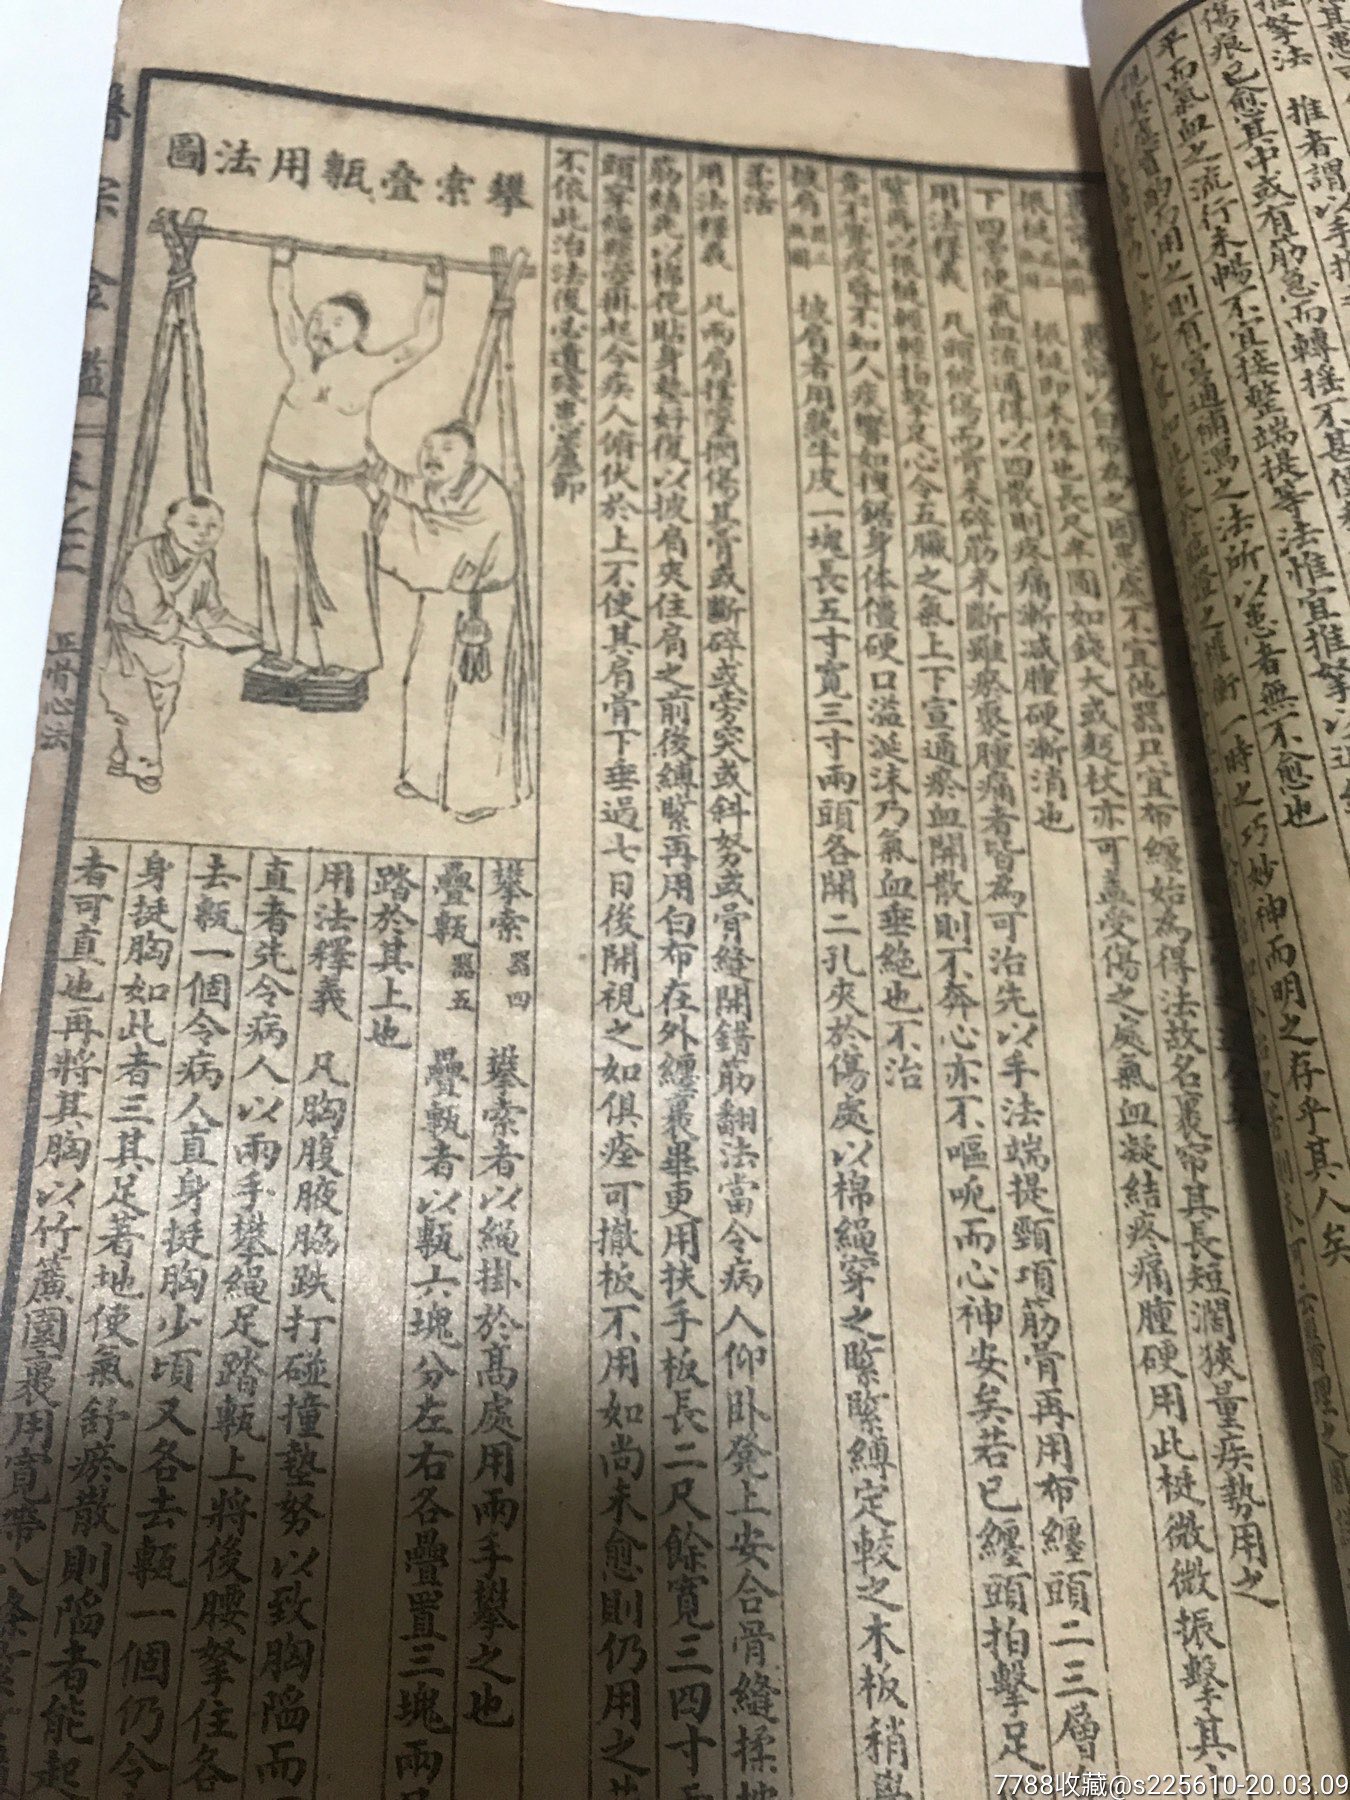 推拏法 推者謂以手推
傷痕已愈其中或有筋急而轉搖不甚便
平而氣血之流行未暢不宜接整端提等法惟宜推拏以通
則有宣通補瀉之法所以患者無不愈也
一時之巧妙神而明之存乎其人矣
以白布為之因患處不宜他器只宜布纏始為得法故名裹帘其長短濶狹量疾勢用之
振梃 振梃即木棒也長尺半圓如錢大或麪杖亦可盖受傷之處氣血凝結疼痛腫硬用此梃微微振擊其
下四旁使氣血流通得以四散則疼痛漸減腫硬漸消也
用法釋義 凡頭被傷而骨未碎筋未斷雖瘀聚腫痛者皆為可治先以手法端提頸項筋骨再用布纏頭二三層
緊再以振梃輕輕拍擊足心令五臟之氣上下宣通瘀血開散則不奔心亦不嘔呃而心神安矣若已纏頭拍擊足
不覺疼昏不知人痰響如拽鋸身体僵硬口溢涎沫乃氣血垂絕也不治
披肩 披肩者用熟牛皮一塊長五寸寬三寸兩頭各開二孔夾於傷處以棉繩穿之緊緊縛定較之木板稍
柔活
用法釋義 凡兩肩擅墜捫傷其骨或斷碎或旁突或斜努或骨縫開錯筋翻法當令病人仰卧凳上安合骨縫揉
筋結先以棉花貼身墊好復以披肩夾住肩之前後縛緊再用白布在外纏裹畢更用扶手板長二尺餘寬三四寸
頭穿繩懸空掛起令疾人俯伏於上不使其肩骨下垂過七日後開視之如俱痊可撤板不用如尚未愈則仍用之
不依此治法後必遺殘患蘆節
攀索疊甎用法圖
攀索 器四 攀索者以繩掛於高處用兩手攀之也
疊甎 器五 疊甎者以甎六塊分左右各疊置三塊兩
踏於其上也
用法釋義 凡胸腹腋脇跌打碰撞墊努以致胸陷而
直者先令病人以兩手攀繩足踏甎上將後腰拏住各
去甎一個令病人直身挺胸少頃又各去甎一個仍令
身挺胸如此者三其足著地使氣舒瘀散則陷者能起
者可直也再將其胸以竹簾圍裹用寬帶八條
醫宗金鑑
正骨心法
7788收藏@s225610-20.03.09